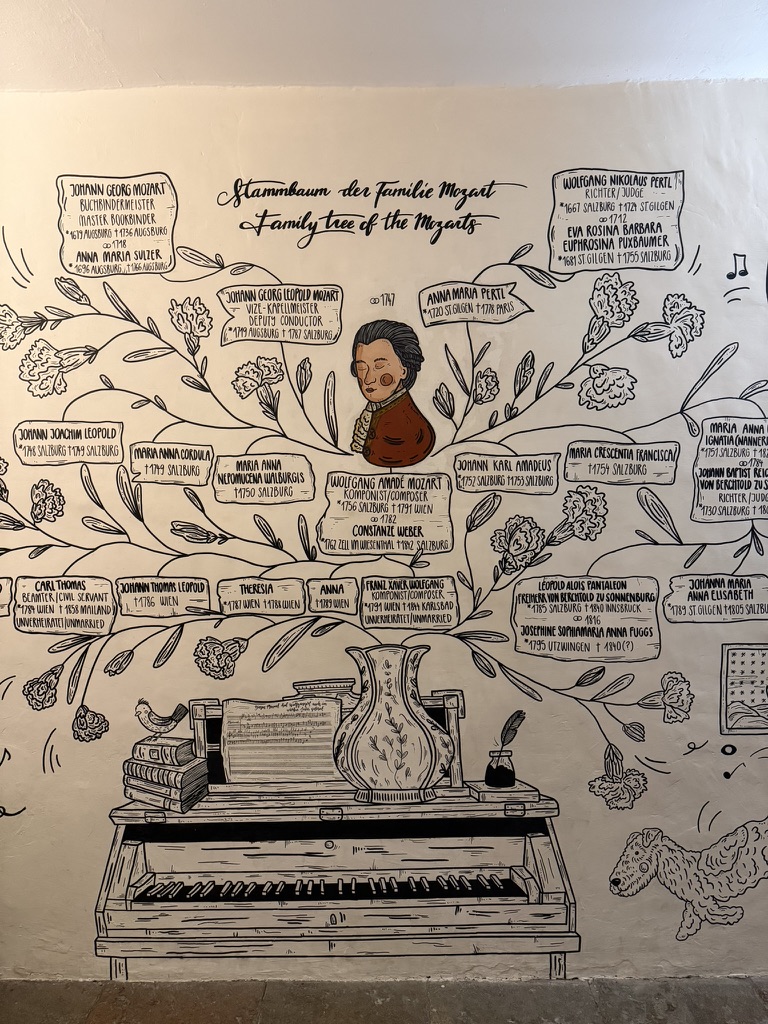 Stammbaum der Familie Mozart
Family tree of the Mozarts
JOHANN GEORG MOZART
BUCHBINDERMEISTER
MASTER BOOKBINDER
*1679 AUGSBURG †1736 AUGSBURG
∞ 1718
ANNA MARIA SULZER
*1696 AUGSBURG †1766 AUGSBURG
WOLFGANG NIKOLAUS PERTL
RICHTER/JUDGE
*1667 SALZBURG †1724 ST.GILGEN
∞ 1712
EVA ROSINA BARBARA
EUPHROSINA PUXBAUMER
*1681 ST.GILGEN †1755 SALZBURG
JOHANN GEORG LEOPOLD MOZART
VIZE-KAPELLMEISTER
DEPUTY CONDUCTOR
*1719 AUGSBURG †1787 SALZBURG
∞ 1747
ANNA MARIA PERTL
*1720 ST.GILGEN †1778 PARIS
JOHANN JOACHIM LEOPOLD
*1748 SALZBURG †1749 SALZBURG
MARIA ANNA CORDULA
†1749 SALZBURG
MARIA ANNA
NEPOMUCENA WALBURGIS
†1750 SALZBURG
WOLFGANG AMADÉ MOZART
KOMPONIST/COMPOSER
*1756 SALZBURG †1791 WIEN
∞ 1782
CONSTANZE WEBER
*1762 ZELL IM WIESENTHAL †1842 SALZBURG
JOHANN KARL AMADEUS
*1752 SALZBURG †1753 SALZBURG
MARIA CRESCENTIA FRANCISCA
†1754 SALZBURG
MARIA ANNA
IGNATIA (NANNER
*1751 SALZBURG †18
∞ 1784
JOHANN BAPTIST REIC
VON BERCHTOLD ZU S
RICHTER/JUDG
*1730 SALZBURG †180
CARL THOMAS
BEAMTER/CIVIL SERVANT
*1784 WIEN †1858 MAILAND
UNVERHEIRATET/UNMARRIED
JOHANN THOMAS LEOPOLD
†1786 WIEN
THERESIA
*1787 WIEN †1788 WIEN
ANNA
†1789 WIEN
FRANZ XAVER WOLFGANG
KOMPONIST/COMPOSER
*1791 WIEN †1844 KARLSBAD
UNVERHEIRATET/UNMARRIED
LEOPOLD ALOIS PANTALEON
FREIHERR VON BERCHTOLD ZU SONNENBURG
*1785 SALZBURG †1840 INNSBRUCK
∞ 1816
JOSEPHINE SOPHIAMARIA ANNA FUGGS
*1795 UTZWINGEN †1840(?)
JOHANNA MARIA
ANNA ELISABETH
*1789 ST.GILGEN †1805 SALZBU